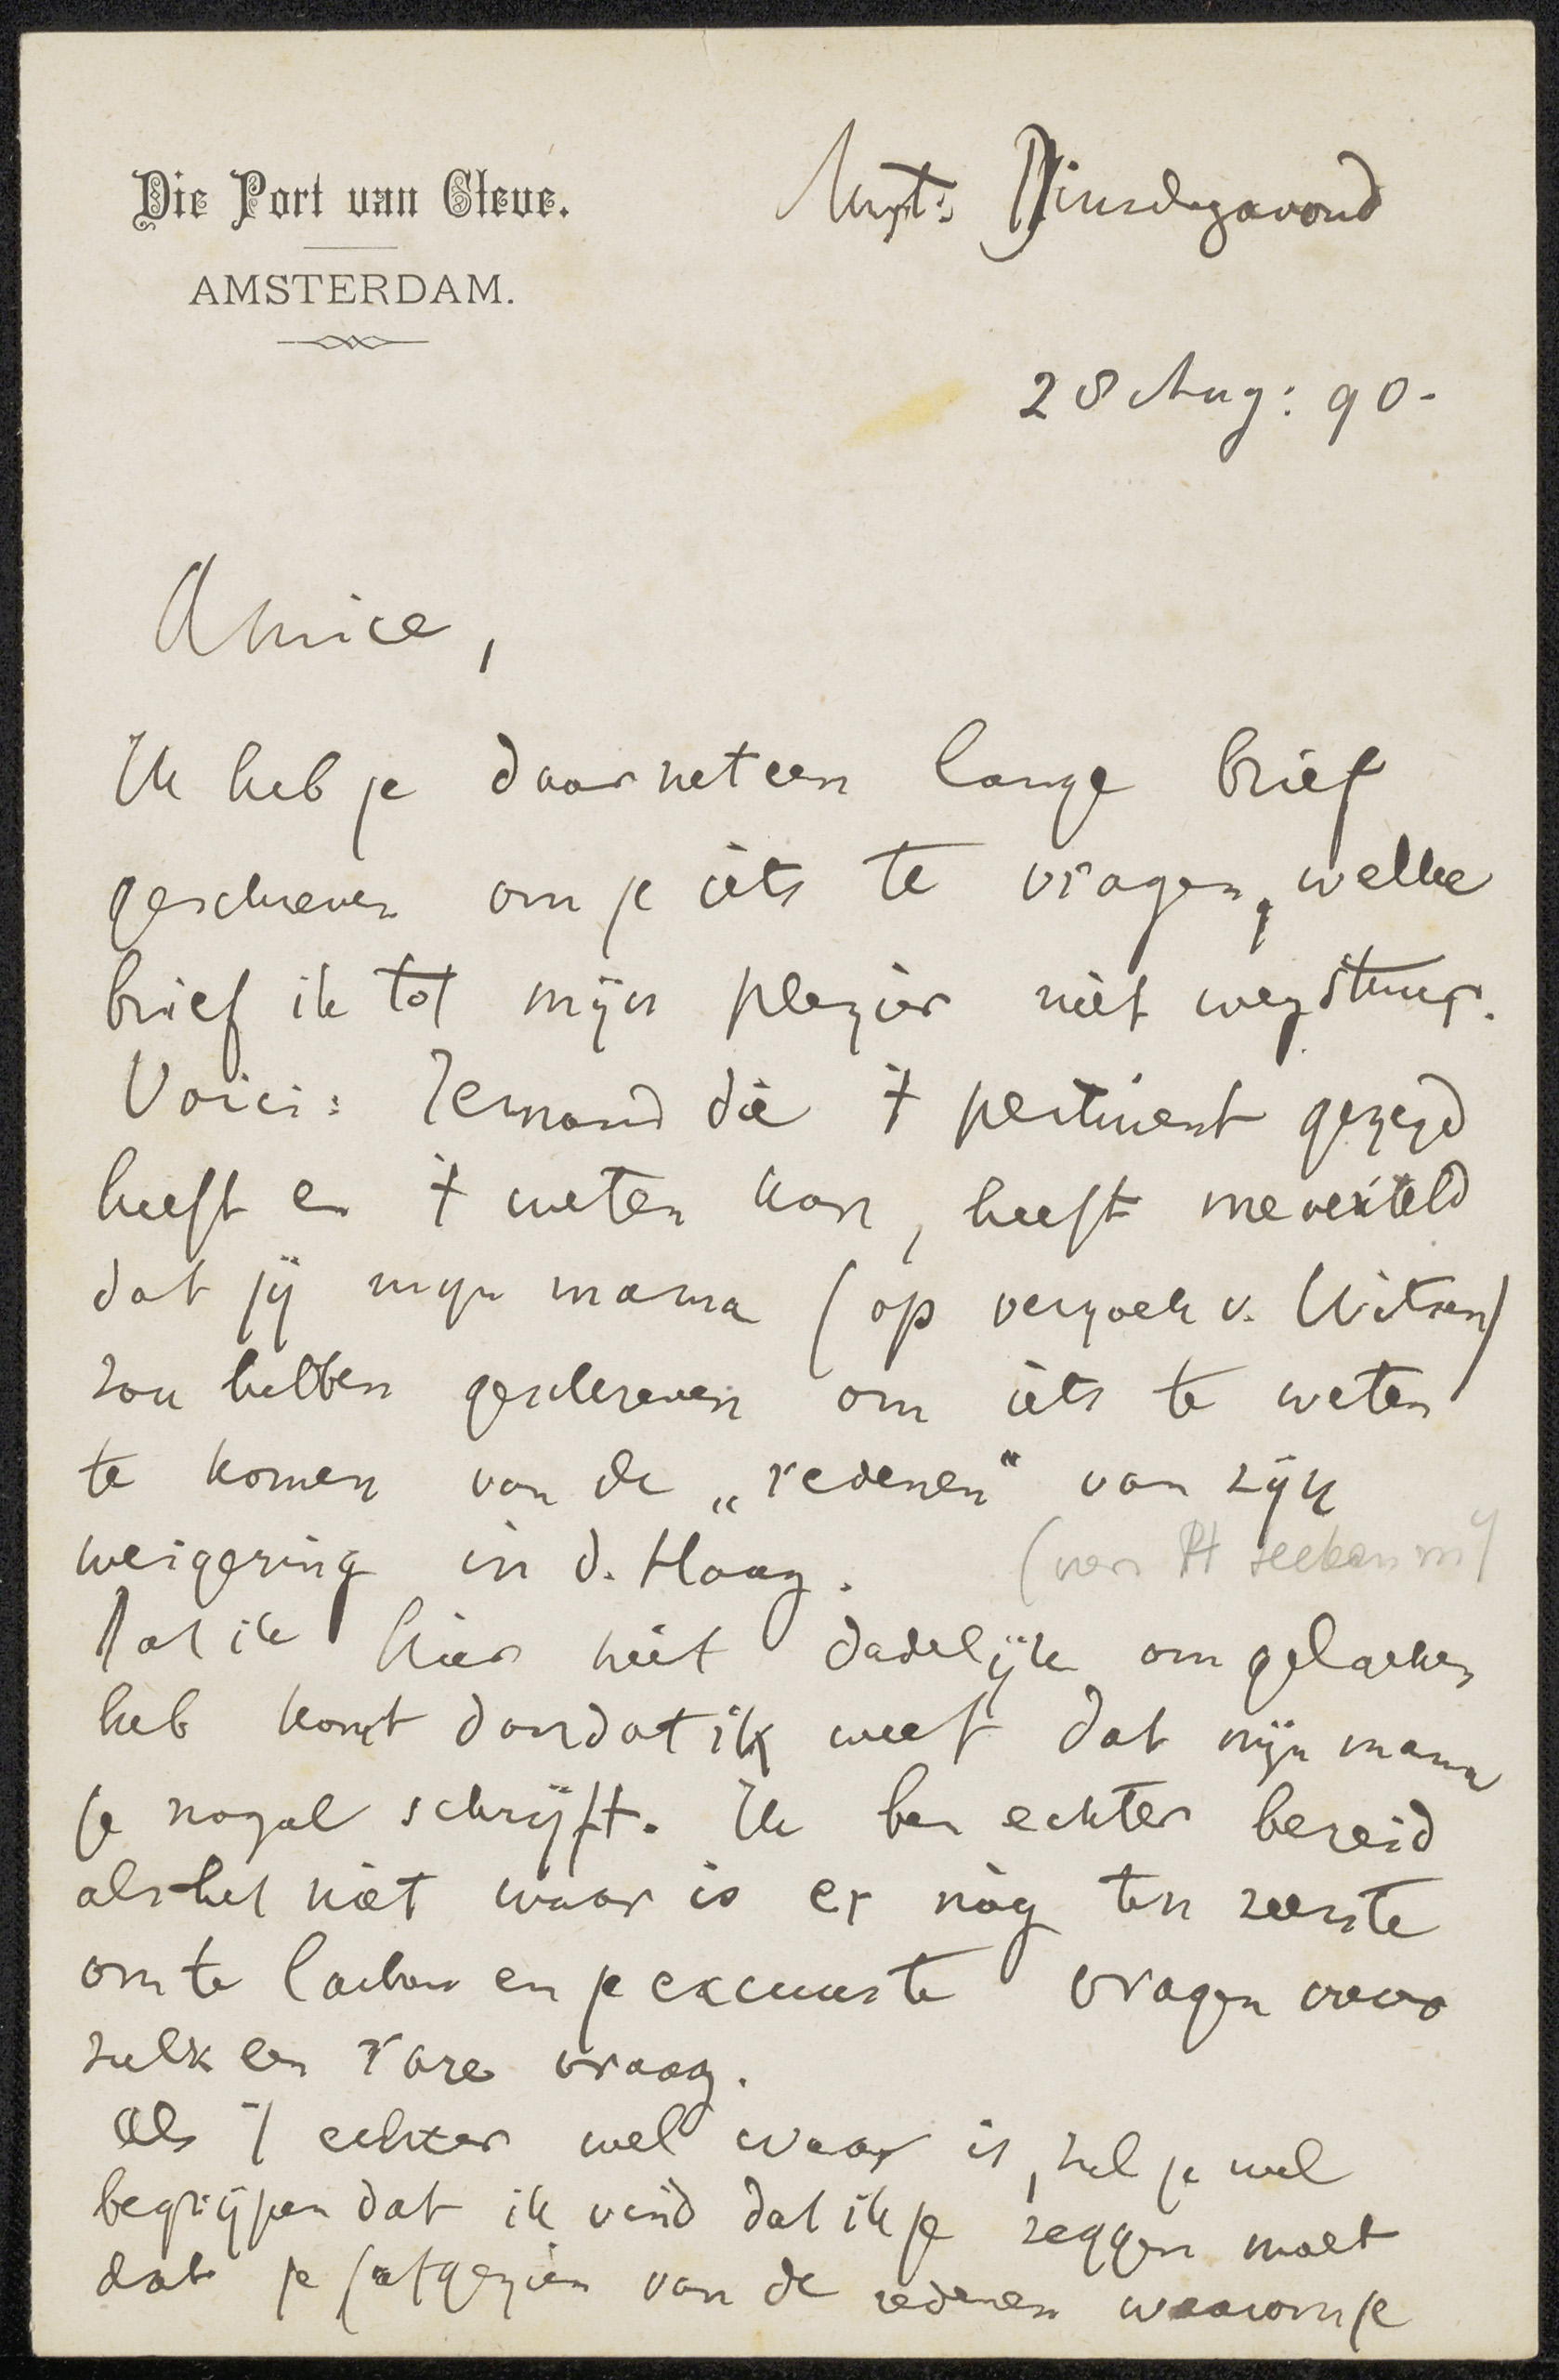 Die Port van Cleve.
AMSTERDAM.
Amst: Dinsdagavond
28 Aug: 90.
Amice,
Ik heb je daarnet een lange brief
geschreven om je iets te vragen, welke
brief ik tot mijn plezier niet wegstuur.
Voici: Iemand die 't pertinent gezegd
heeft en 't weten kan, heeft me verteld
dat jij mijn mama (op verzoek v. Witsen)
zou hebben geschreven om iets te weten
te komen van de „redenen" van zijn
weigering in d. Haag.
Dat ik hier niet dadelijk om gelachen
heb komt doordat ik weet dat mijn mama
je nogal schrijft. Ik ben echter bereid
als het niet waar is er nòg ten zeerste
om te lachen en je excuus te vragen voor
zulk een rare vraag.
Als 't echter wel waar is, zul je wel
begrijpen dat ik vind dat ik je zeggen moet
dat je (afgezien van de redenen waarom je